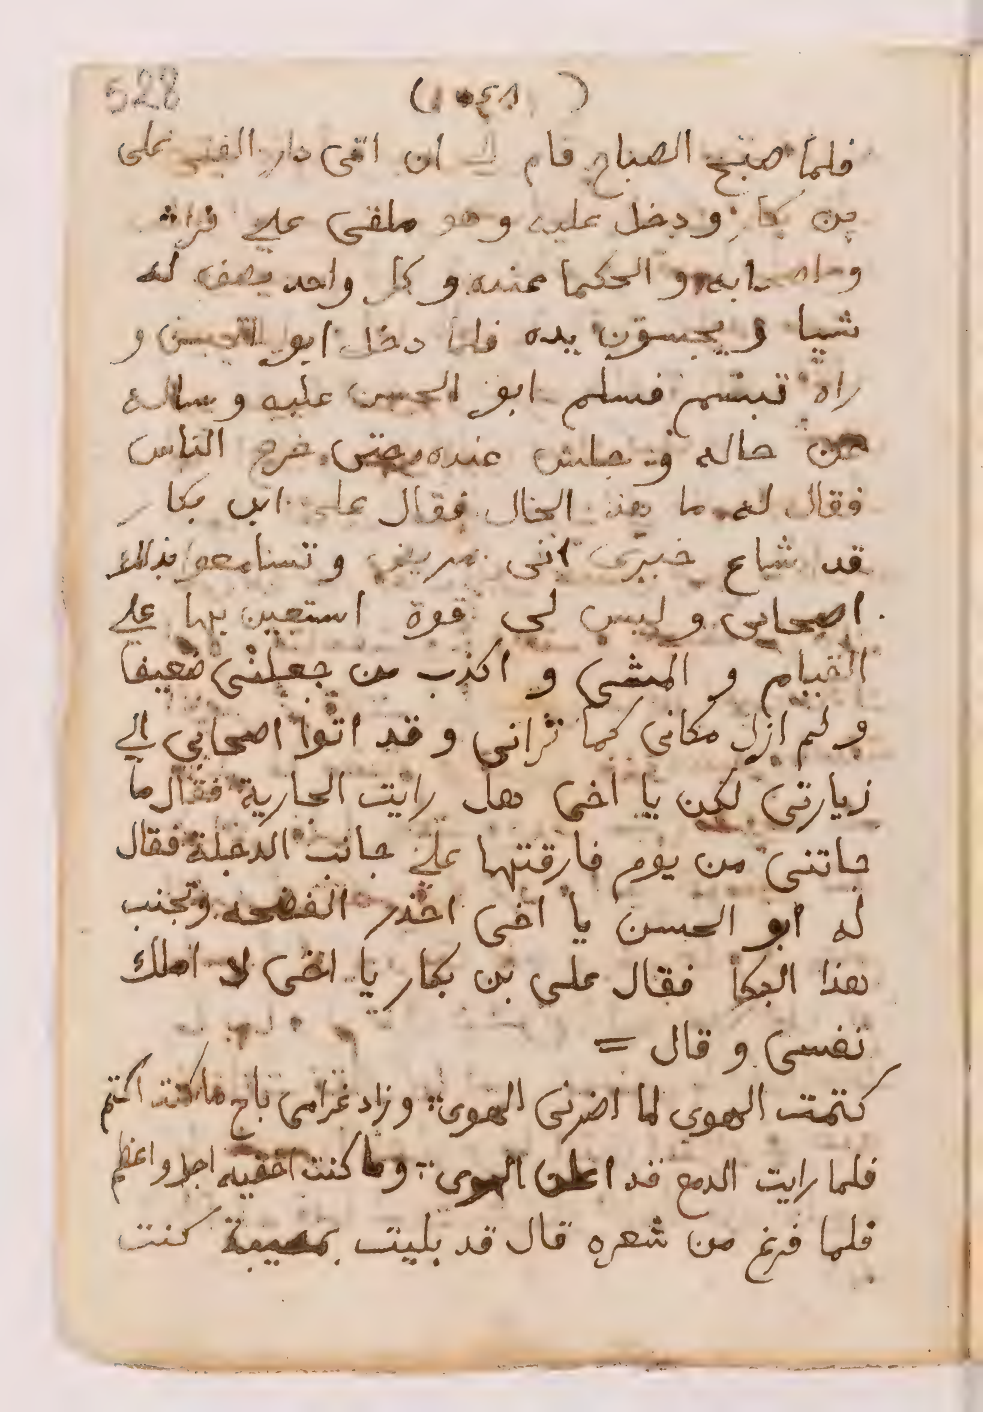 528
(١٠٤٨)
فلما صبح الصباح قام الى ان اتى دار الفتى على
بن بكار ودخل عليه وهو ملقى على فراشه
واصحابه والحكما عنده وكل واحد يصف له
شيا ويجسون يده فلما دخل ابو الحسن و
راه تبسم فسلم ابو الحسن عليه وساله
عن حاله وجلس عنده حتى خرج الناس
فقال له ما هذا الحال فقال على ابن بكار
قد شاع خبرى انى مريض وتسامعوا بذالك
اصحابى وليس لى قوة استعين بها على
القيام والمشى واكذب من جعلنى ضعيفا
ولم ازل مكانى كما ترانى وقد اتوا اصحابي الى
زيارتى لكن يا اخى هل رايت الجارية فقال ما
جاتنى من يوم فارقتها على جانب الدجلة فقال
له ابو الحسن يا اخى احذر الفضحه وتجنب
هذا البكا فقال على بن بكار يا اخى لا املك
نفسى وقال =
كتمت الهوى لما اضرنى الهوى ؞ وزاد غرامى باح ما كنت اكتم
فلما رايت الدمع قد اعلن الهوى ؞ وما كنت اخفيه اجل واعظم
فلما فرغ من شعره قال قد بليت بمصيبة كنت